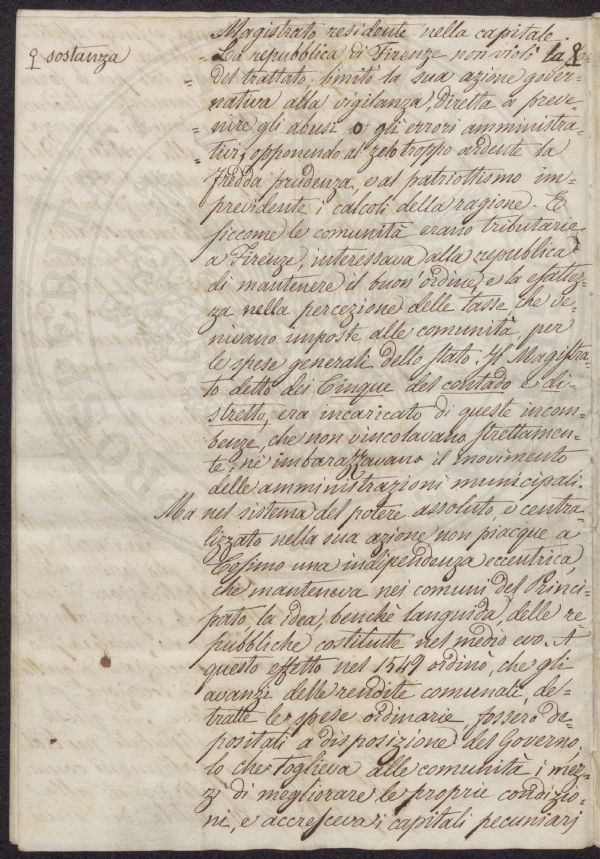 Magistrato residente nella capitale.
♀ sostanza
La repubblica di Firenze non violò la ♀
del trattato: limitò la sua azione gover-
nativa alla vigilanza, diretta a preve-
nire gli abusi o gli errori amministra-
tivi, opponendo al zelo troppo ardente la
fredda prudenza, e al patriottismo im-
previdente i calcoli della ragione. E
siccome le comunità erano tributarie
a Firenze, interessava alla republica
di mantenere il buon'ordine, e la esattez-
za nella percezione delle tasse che ve-
nivano imposte alle comunità per
le spese generali dello stato. Il Magistra-
to detto dei Cinque del contado e di-
stretto, era incaricato di queste incom-
benze, che non vincolavano strettamen-
te, nè imbarazzavano il movimento
delle amministrazioni municipali.
Ma nel sistema del potere assoluto e centra-
lizzato nella sua azione non piacque a
Cosimo una indipendenza eccentrica,
che manteneva nei comuni del Princi-
pato la idea, benchè languida, delle re-
pubbliche costituite nel medio evo. A
questo effetto nel 1549 ordinò, che gli
avanzi delle rendite comunali, de-
tratte le spese ordinarie fossero de-
positati a disposizione del Governo,
lo che toglieva alle comunità i mez-
zi di megliorare le proprie condizio-
ni, e accresceva i capitali pecuniarj